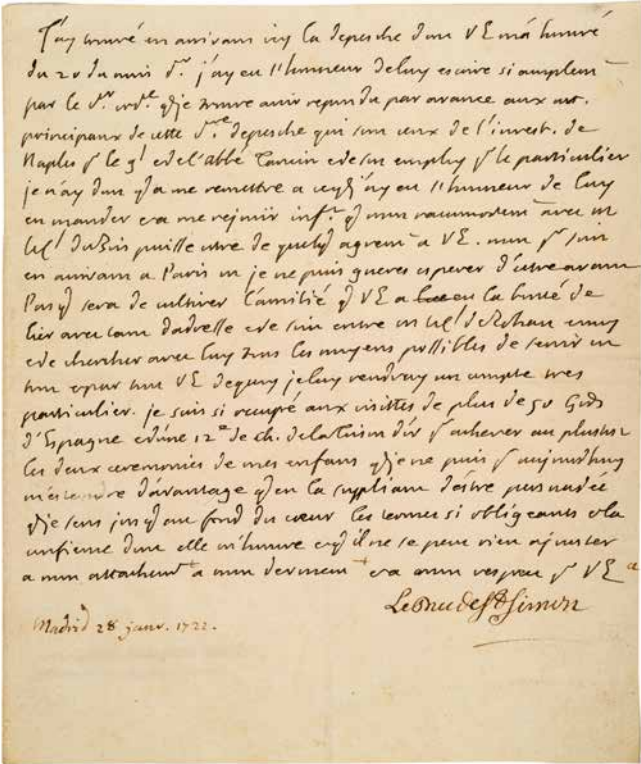 J'ay trouvé en arrivant icy la depesche dont VE m'a honnoré
du 20 du mois dr. j'ay eu l'honneur de luy escrire si amplemt
par le dr. ordre. qe je trouve avoir repondu par avance aux art.
principaux de cette dre. depesche qui sont ceux de l'invest. de
Naples pr le gl et de l'abbé Tencin et de son employ pr le particulier
je n'ay donc qu'a me remettre a ce qe j'ay eu l'honneur de luy
en mander et a me rejouir inft. qe mon raccomodemt avec m
le Cl duBois puisse estre de quelq agremt a VE. mon pr soin
en arrivant a Paris ou je ne puis gueres esperer d'estre avant
Pasq sera de cultiver l'amitié qe VE a eu la bonté de
lier avec tant d'adresse et de soin entre m le Cl de Rohan et moy
et de chercher avec luy tous les moyens possibles de servir en
tout et par tout VE de quoy je luy rendray un compte tres
particulier. je suis si occupé aux visittes de plus de 50 Gds
d'Espagne et d'une 12e de ch. de la Toison d'or pr achever au plustost
les deux ceremonies de mes enfans qe je ne puis pr aujourdhuy
m'estendre d'avantage qu'en la suppliant d'estre persuadée
qe je sens jusqu'au fond du coeur les termes si obligeants et la
confience dont elle m'honnore et qu'il ne se peut rien ajouster
a mon attachemt a mon devouemt et a mon respect pr VE
Le Duc de St Simon
Madrid 28 janv. 1722.